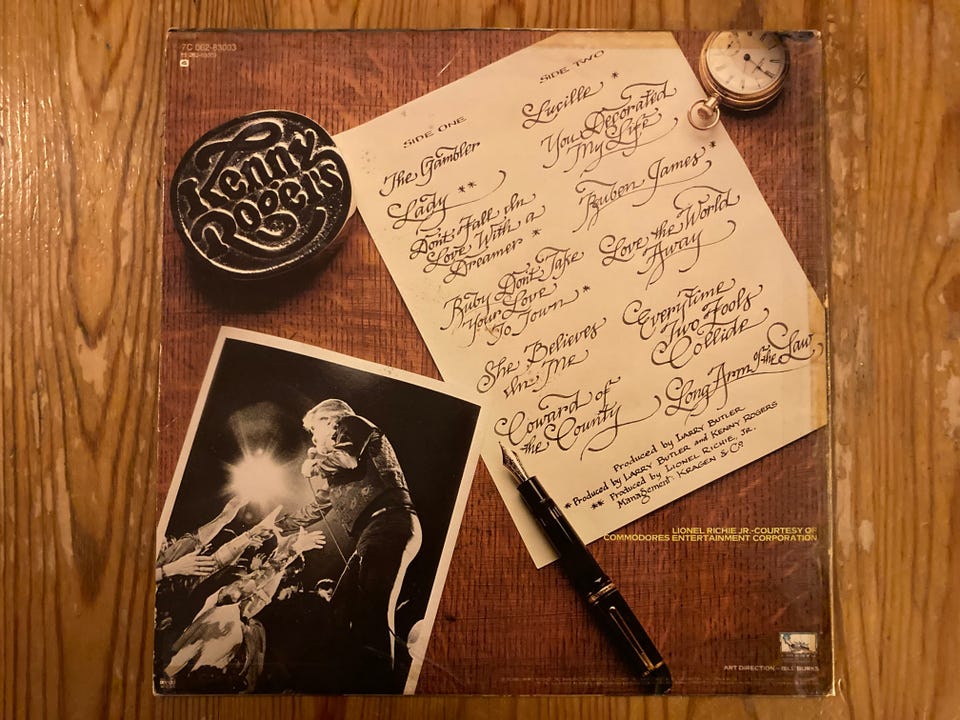 7C 062-83003
Kenny
Rogers
SIDE ONE
The Gambler
Lady **
Don't Fall In
Love With a
Dreamer *
Ruby Don't Take
Your Love
To Town *
She Believes
In Me
Coward of
the County
SIDE TWO
Lucille *
You Decorated
My Life
Reuben James *
Love the World
Away
Everytime
Two Fools
Collide
Long Arm of the Law
Produced by LARRY BUTLER
* Produced by LARRY BUTLER and KENNY ROGERS
** Produced by LIONEL RICHIE, JR.
Management: KRAGEN & Co
LIONEL RICHIE JR.-COURTESY OF
COMMODORES ENTERTAINMENT CORPORATION
ART DIRECTION - BILL BURKS